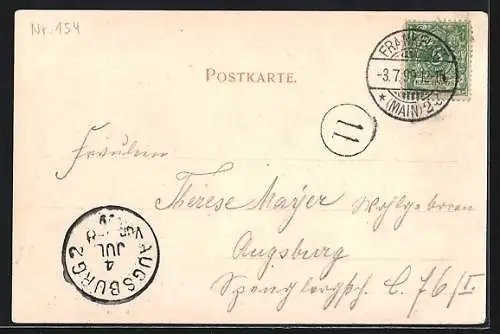 Nr. 154
POSTKARTE.
FRANKFURT
-3.7.99.12-1N
* (MAIN) 2
11
Fräulein
Therese Mayer Wohlgeboren
Augsburg
C. 76/I.
AUGSBURG 2
4
JUL